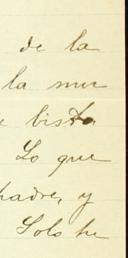 de la
la
bisto
Lo que
padre, y
Solo he